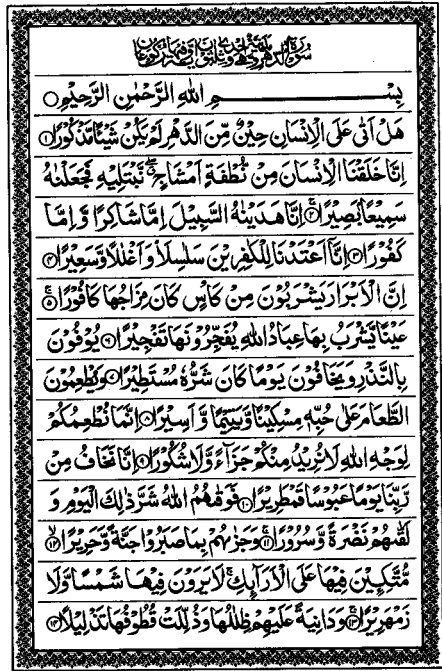 بِسْمِ اللهِ الرَّحْمٰنِ الرَّحِيْمِ ○
هَلْ اَتٰى عَلَى الْاِنْسَانِ حِيْنٌ مِّنَ الدَّهْرِ لَمْ يَكُنْ شَيْئًا مَّذْكُوْرًا ۝۱
اِنَّا خَلَقْنَا الْاِنْسَانَ مِنْ نُّطْفَةٍ اَمْشَاجٍ ۖ نَّبْتَلِيْهِ فَجَعَلْنٰهُ
سَمِيْعًۢا بَصِيْرًا ۝۲ اِنَّا هَدَيْنٰهُ السَّبِيْلَ اِمَّا شَاكِرًا وَّاِمَّا
كَفُوْرًا ۝۳ اِنَّا اَعْتَدْنَا لِلْكٰفِرِيْنَ سَلٰسِلَا۟ وَاَغْلٰلًا وَّسَعِيْرًا ۝۴
اِنَّ الْاَبْرَارَ يَشْرَبُوْنَ مِنْ كَاْسٍ كَانَ مِزَاجُهَا كَافُوْرًا ۝۵
عَيْنًا يَّشْرَبُ بِهَا عِبَادُ اللهِ يُفَجِّرُوْنَهَا تَفْجِيْرًا ۝۶ يُوْفُوْنَ
بِالنَّذْرِ وَيَخَافُوْنَ يَوْمًا كَانَ شَرُّهٗ مُسْتَطِيْرًا ۝۷ وَيُطْعِمُوْنَ
الطَّعَامَ عَلٰى حُبِّهٖ مِسْكِيْنًا وَّيَتِيْمًا وَّاَسِيْرًا ۝۸ اِنَّمَا نُطْعِمُكُمْ
لِوَجْهِ اللهِ لَا نُرِيْدُ مِنْكُمْ جَزَآءً وَّلَا شُكُوْرًا ۝۹ اِنَّا نَخَافُ مِنْ
رَّبِّنَا يَوْمًا عَبُوْسًا قَمْطَرِيْرًا ۝۱۰ فَوَقٰىهُمُ اللهُ شَرَّ ذٰلِكَ الْيَوْمِ وَ
لَقّٰىهُمْ نَضْرَةً وَّسُرُوْرًا ۝۱۱ وَجَزٰىهُمْ بِمَا صَبَرُوْا جَنَّةً وَّحَرِيْرًا ۝۱۲
مُّتَّكِـِٕيْنَ فِيْهَا عَلَى الْاَرَآئِكِ ۚ لَا يَرَوْنَ فِيْهَا شَمْسًا وَّلَا
زَمْهَرِيْرًا ۝۱۳ وَدَانِيَةً عَلَيْهِمْ ظِلٰلُهَا وَذُلِّلَتْ قُطُوْفُهَا تَذْلِيْلًا ۝۱۴